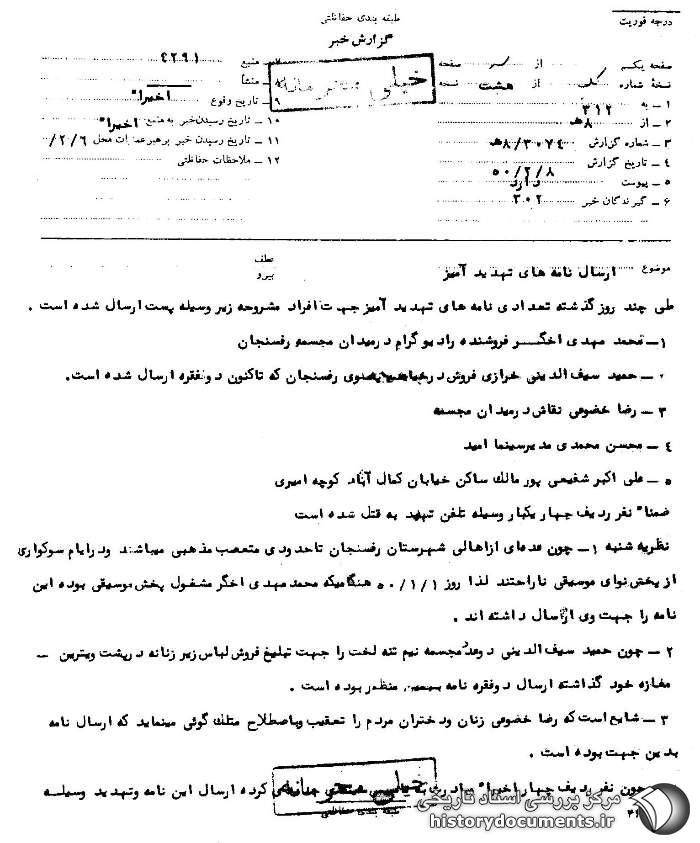 درجه فوریت
طبقه بندی حفاظتی
گزارش خبر
خیلی محرمانه
صفحه یک از سه صفحه
نسخهٔ شماره یک از هشت نسخه
۱ ـ به ۳۱۲
۲ ـ از ۸ هـ
۳ ـ شماره گزارش ۸/۳۰۷۴ هـ
۴ ـ تاریخ گزارش ۵۰/۲/۸
۵ ـ پیوست دارد
۶ ـ گیرندگان خبر ۳۰۲
۷ ـ منبع ٤٢٩١
۸ ـ منشأ
۹ ـ تاریخ وقوع اخیرا"
۱۰ ـ تاریخ رسیدن خبر به منبع اخیرا"
۱۱ ـ تاریخ رسیدن خبر برهبر عملیات محل /۲/۶
۱۲ ـ ملاحظات حفاظتی
موضوع ارسال نامه های تهدید آمیز
عطف
پیرو
طی چند روز گذشته تعدادی نامه های تهدید آمیز جهت افراد مشروحه زیر وسیله پست ارسال شده است .
۱ـ محمد مهدی اخگر فروشنده رادیو گرام در میدان مجسمه رفسنجان
ـ حمید سیف الدینی خرازی فروش در خیابان پهلوی رفسنجان که تاکنون دو فقره ارسال شده است.
۳ ـ رضا خضوعی نقاش در میدان مجسمه
٤ ـ محسن محمدی مدیر سینما امید
۵ ـ علی اکبر شفیعی پور مالک ساکن خیابان کمال آباد کوچه امیری
ضمنا" نفر ردیف چهار یکبار وسیله تلفن تهدید به قتل شده است
نظریه شنبه ۱ـ چون عده‌ای از اهالی شهرستان رفسنجان تا حدودی متعصب مذهبی میباشند و در ایام سوکواری
از پخش نوای موسیقی ناراحتند لذا روز ۵۰/۱/۱ هنگامیکه محمد مهدی اخگر مشغول پخش موسیقی بوده این
نامه را جهت وی ارسال داشته اند .
۲ ـ چون حمید سیف الدینی دو عدد مجسمه نیم تنه لخت را جهت تبلیغ فروش لباس زیر زنانه در پشت ویترین ـ
مغازه خود گذاشته ارسال دو فقره نامه بهمین منظور بوده است .
۳ ـ شایع است که رضا خضوعی زنان و دختران مردم را تعقیب و باصطلاح متلک گوئی مینماید که ارسال نامه
بدین جهت بوده است .
چون نفر ردیف چهار اخیرا" کرده ارسال این نامه وتهدید وسیله
خیلی محرمانه
طبقه بندی حفاظتی
مرکز بررسی اسناد تاریخی
historydocuments.ir